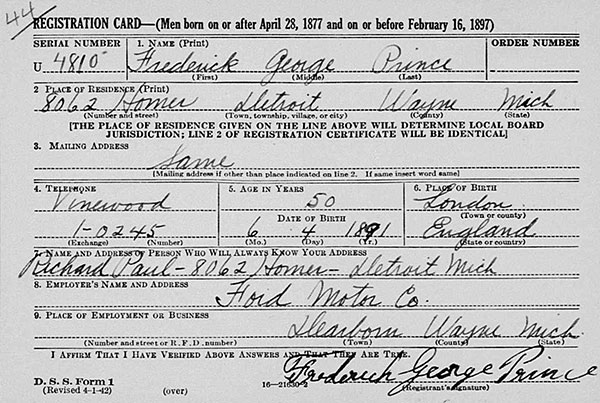 44
REGISTRATION CARD—(Men born on or after April 28, 1877 and on or before February 16, 1897)
SERIAL NUMBER 1. NAME (Print) ORDER NUMBER
U 4810 Frederick George Prince
(First) (Middle) (Last)
2. PLACE OF RESIDENCE (Print)
8062 Homer Detroit Wayne Mich
(Number and street) (Town, township, village, or city) (County) (State)
[THE PLACE OF RESIDENCE GIVEN ON THE LINE ABOVE WILL DETERMINE LOCAL BOARD
JURISDICTION; LINE 2 OF REGISTRATION CERTIFICATE WILL BE IDENTICAL]
3. MAILING ADDRESS
Same
[Mailing address if other than place indicated on line 2. If same insert word same]
4. TELEPHONE 5. AGE IN YEARS 6. PLACE OF BIRTH
Vinewood 50 London
DATE OF BIRTH (Town or county)
1-0245 6 4 1891 England
(Exchange) (Number) (Mo.) (Day) (Yr.) (State or country)
7. NAME AND ADDRESS OF PERSON WHO WILL ALWAYS KNOW YOUR ADDRESS
Richard Paul - 8062 Homer - Detroit Mich
8. EMPLOYER'S NAME AND ADDRESS
Ford Motor Co.
9. PLACE OF EMPLOYMENT OR BUSINESS
Dearborn Wayne Mich.
(Number and street or R. F. D. number) (Town) (County) (State)
I AFFIRM THAT I HAVE VERIFIED ABOVE ANSWERS AND THAT THEY ARE TRUE.
Frederick George Prince
D. S. S. Form 1 16—21630-2 (Registrant's signature)
(Revised 4-1-42) (over)